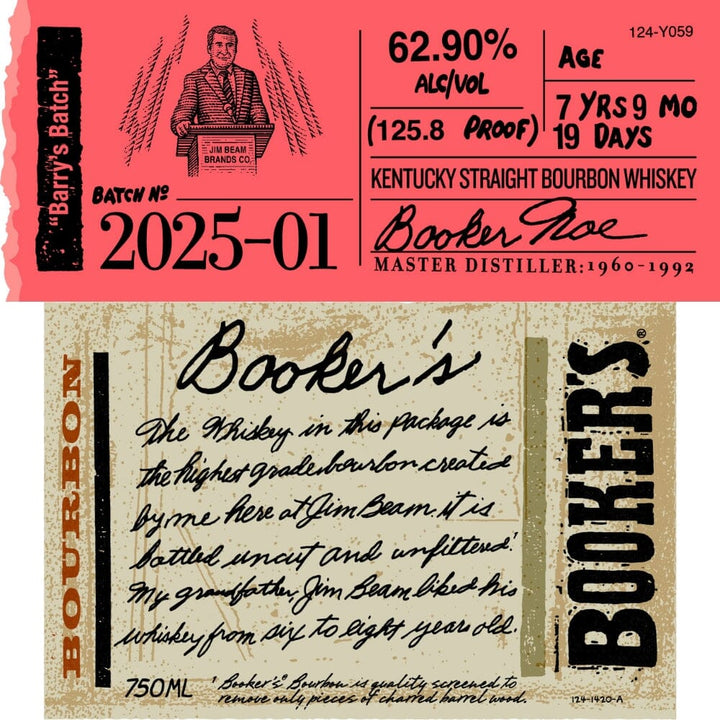 "Barry's Batch"
JIM BEAM
BRANDS CO.
BATCH Nº
2025-01
62.90%
ALC/VOL
(125.8 PROOF)
124-Y059
AGE
7 YRS 9 MO
19 DAYS
KENTUCKY STRAIGHT BOURBON WHISKEY
Booker Noe
MASTER DISTILLER: 1960-1992
BOURBON
Booker's
The Whiskey in this package is
the highest grade bourbon created
by me here at Jim Beam. it is
bottled uncut and unfiltered!
My grandfather, Jim Beam liked his
whiskey from six to eight years old.
750ML
¹ Booker's® Bourbon is quality screened to
remove only pieces of charred barrel wood.
BOOKER'S®
124-1420-A